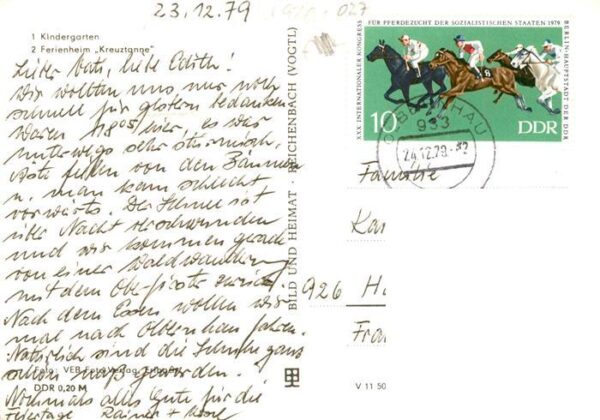 23.12.79
1 Kindergarten
2 Ferienheim „Kreuztanne"
Lieber Vati, liebe Edith!
Wir wollten uns nur noch
schnell für gestern bedanken
Waren 18⁰⁵ hier, es war
unterwegs sehr stürmisch,
Äste fielen von den Bäumen
u. man kam schlecht
vorwärts. Der Schnee ist
über Nacht verschwunden
und wir kommen gerade
von einer Waldwanderung
mit dem Oberförster zurück.
Nach dem Essen wollen wir
mal nach Olbernhau fahren.
Natürlich sind die Schuhe ganz
schön naß geworden.
Nochmals alles Gute für die
Feiertage Rainer +
Foto: VEB
DDR 0,20 M
BILD UND HEIMAT · REICHENBACH (VOGTL)
XXX. INTERNATIONALER KONGRESS
FÜR PFERDEZUCHT DER SOZIALISTISCHEN STAATEN 1979
BERLIN-HAUPTSTADT DER DDR
10
DDR
OLBERNHAU
933
24.12.79
Familie
Kar
926 H
Fra
V 11 50